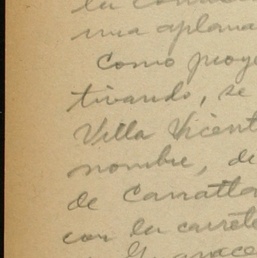 la
una aplana
Como proye
tivando, se
Villa Vicent
nombre, de
de Carratla
con la carrete